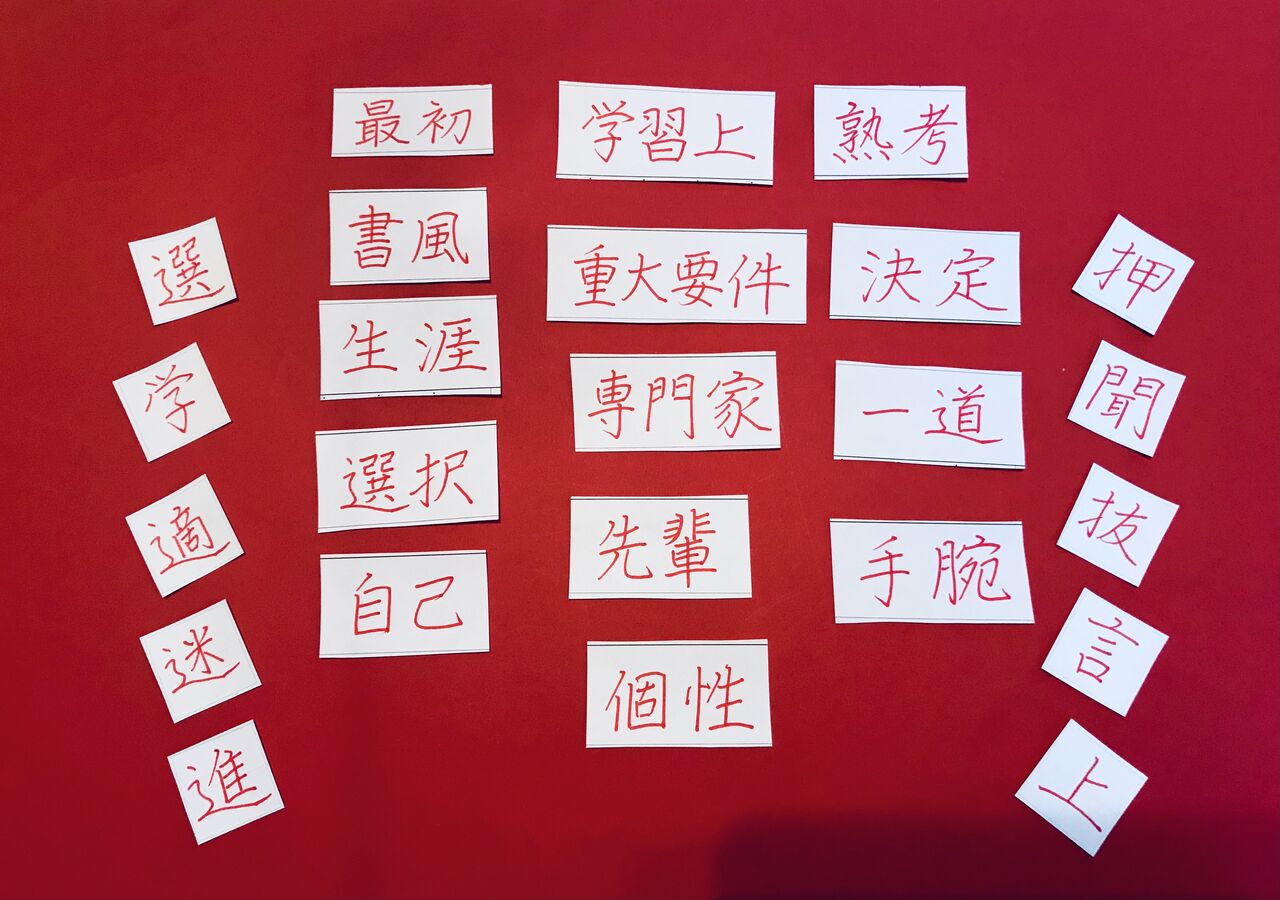 選
学
適
迷
進
最初
書風
生涯
選択
自己
学習上
重大要件
専門家
先輩
個性
熟考
決定
一道
手腕
押
聞
抜
言
上